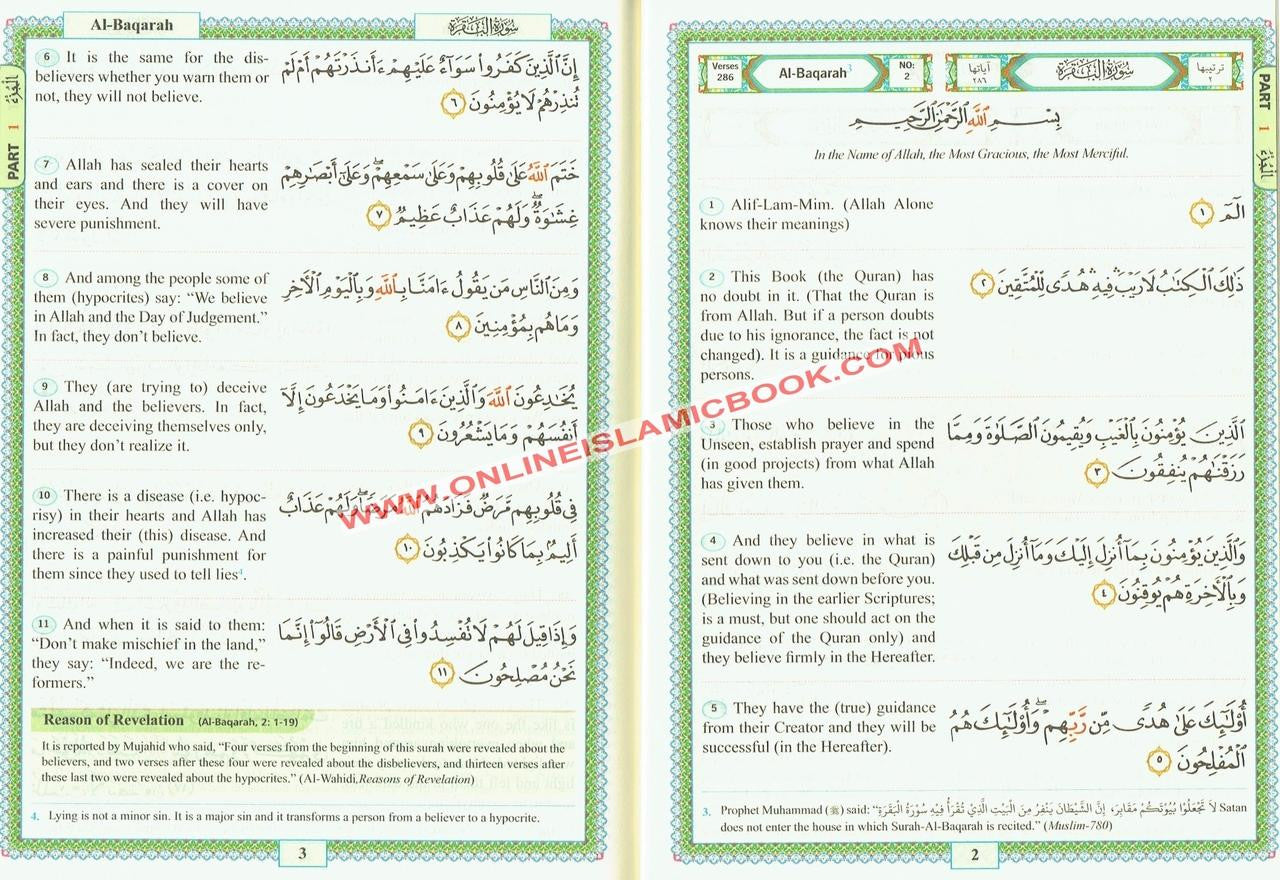 PART 1 الجزء
Verses 286
Al-Baqarah³
NO: 2
آياتها ٢٨٦
سُورَةُ البَقَرَةِ
ترتيبها ٢
بِسْمِ ٱللَّهِ ٱلرَّحْمَٰنِ ٱلرَّحِيمِ
In the Name of Allah, the Most Gracious, the Most Merciful.
1 Alif-Lam-Mim. (Allah Alone
knows their meanings)
الٓمٓ ١
2 This Book (the Quran) has
no doubt in it. (That the Quran is
from Allah. But if a person doubts
due to his ignorance, the fact is not
changed). It is a guidance for pious
persons.
ذَٰلِكَ ٱلْكِتَٰبُ لَا رَيْبَ ۛ فِيهِ ۛ هُدًى لِّلْمُتَّقِينَ ٢
3 Those who believe in the
Unseen, establish prayer and spend
(in good projects) from what Allah
has given them.
ٱلَّذِينَ يُؤْمِنُونَ بِٱلْغَيْبِ وَيُقِيمُونَ ٱلصَّلَوٰةَ وَمِمَّا
رَزَقْنَٰهُمْ يُنفِقُونَ ٣
4 And they believe in what is
sent down to you (i.e. the Quran)
and what was sent down before you.
(Believing in the earlier Scriptures;
is a must, but one should act on the
guidance of the Quran only) and
they believe firmly in the Hereafter.
وَٱلَّذِينَ يُؤْمِنُونَ بِمَآ أُنزِلَ إِلَيْكَ وَمَآ أُنزِلَ مِن قَبْلِكَ
وَبِٱلْءَاخِرَةِ هُمْ يُوقِنُونَ ٤
5 They have the (true) guidance
from their Creator and they will be
successful (in the Hereafter).
أُو۟لَٰٓئِكَ عَلَىٰ هُدًى مِّن رَّبِّهِمْ ۖ وَأُو۟لَٰٓئِكَ هُمُ
ٱلْمُفْلِحُونَ ٥
3. Prophet Muhammad (ﷺ) said: “لَا تَجْعَلُوا بُيُوتَكُمْ مَقَابِرَ، إِنَّ الشَّيْطَانَ يَنْفِرُ مِنَ الْبَيْتِ الَّذِي تُقْرَأُ فِيهِ سُورَةُ الْبَقَرَةِ Satan
does not enter the house in which Surah-Al-Baqarah is recited.” (Muslim-780)
2
Al-Baqarah
سُورَةُ البَقَرَةِ
PART 1 الجزء
6 It is the same for the dis-
believers whether you warn them or
not, they will not believe.
إِنَّ ٱلَّذِينَ كَفَرُوا۟ سَوَآءٌ عَلَيْهِمْ ءَأَنذَرْتَهُمْ أَمْ لَمْ
تُنذِرْهُمْ لَا يُؤْمِنُونَ ٦
7 Allah has sealed their hearts
and ears and there is a cover on
their eyes. And they will have
severe punishment.
خَتَمَ ٱللَّهُ عَلَىٰ قُلُوبِهِمْ وَعَلَىٰ سَمْعِهِمْ ۖ وَعَلَىٰٓ أَبْصَٰرِهِمْ
غِشَٰوَةٌ ۖ وَلَهُمْ عَذَابٌ عَظِيمٌ ٧
8 And among the people some of
them (hypocrites) say: “We believe
in Allah and the Day of Judgement.”
In fact, they don’t believe.
وَمِنَ ٱلنَّاسِ مَن يَقُولُ ءَامَنَّا بِٱللَّهِ وَبِٱلْيَوْمِ ٱلْءَاخِرِ
وَمَا هُم بِمُؤْمِنِينَ ٨
9 They (are trying to) deceive
Allah and the believers. In fact,
they are deceiving themselves only,
but they don’t realize it.
يُخَٰدِعُونَ ٱللَّهَ وَٱلَّذِينَ ءَامَنُوا۟ وَمَا يَخْدَعُونَ إِلَّآ
أَنفُسَهُمْ وَمَا يَشْعُرُونَ ٩
10 There is a disease (i.e. hypoc-
risy) in their hearts and Allah has
increased their (this) disease. And
there is a painful punishment for
them since they used to tell lies⁴.
فِى قُلُوبِهِم مَّرَضٌ فَزَادَهُمُ ٱللَّهُ مَرَضًا ۖ وَلَهُمْ عَذَابٌ
أَلِيمٌۢ بِمَا كَانُوا۟ يَكْذِبُونَ ١٠
11 And when it is said to them:
“Don’t make mischief in the land,”
they say: “Indeed, we are the re-
formers.”
وَإِذَا قِيلَ لَهُمْ لَا تُفْسِدُوا۟ فِى ٱلْأَرْضِ قَالُوٓا۟ إِنَّمَا
نَحْنُ مُصْلِحُونَ ١١
Reason of Revelation (Al-Baqarah, 2: 1-19)
It is reported by Mujahid who said, “Four verses from the beginning of this surah were revealed about the
believers, and two verses after these four were revealed about the disbelievers, and thirteen verses after
these last two were revealed about the hypocrites.” (Al-Wahidi,Reasons of Revelation)
4. Lying is not a minor sin. It is a major sin and it transforms a person from a believer to a hypocrite.
3
WWW.ONLINEISLAMICBOOK.COM